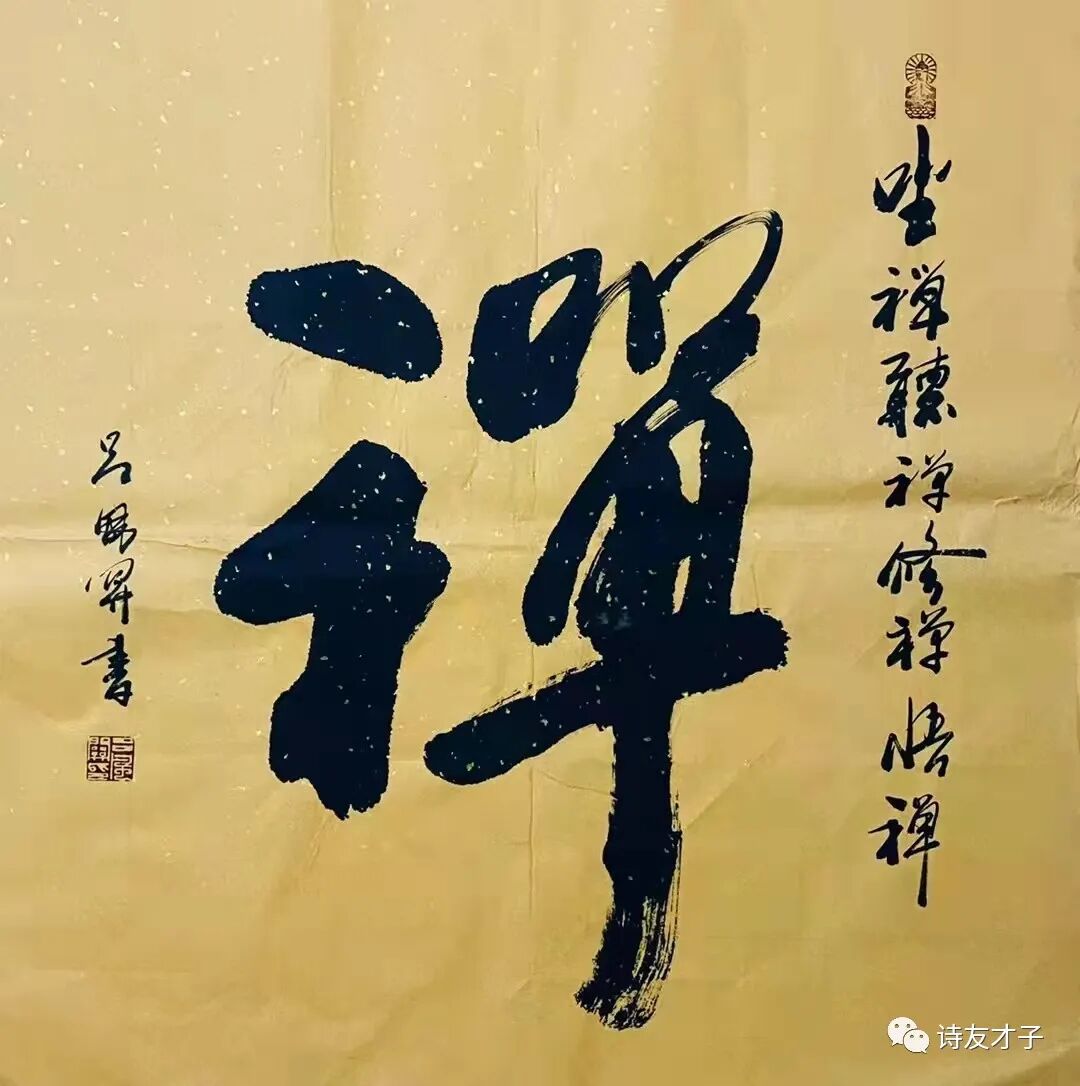 坐禅聽禅修禅悟禅
禪
吕 書
诗友才子